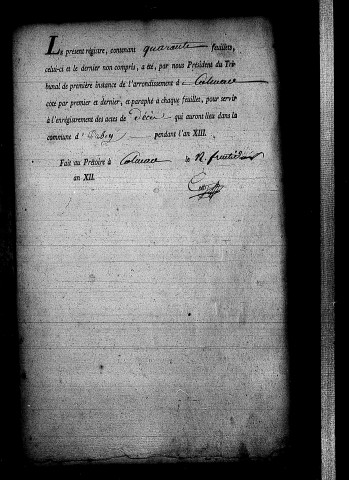 LE présent régistre, contenant quarante feuillets,
celui-ci et le dernier non compris, a été, par nous Président du Tri-
bunal de première instance de l'arrondissement d Colmar
coté par premier et dernier, et paraphé à chaque feuillet, pour servir
à l'enregistrement des actes de Décès qui auront lieu dans la
commune d'Orbey pendant l'an XIII.
Fait au Prétoire à Colmar le 12 fructidor
an XII.